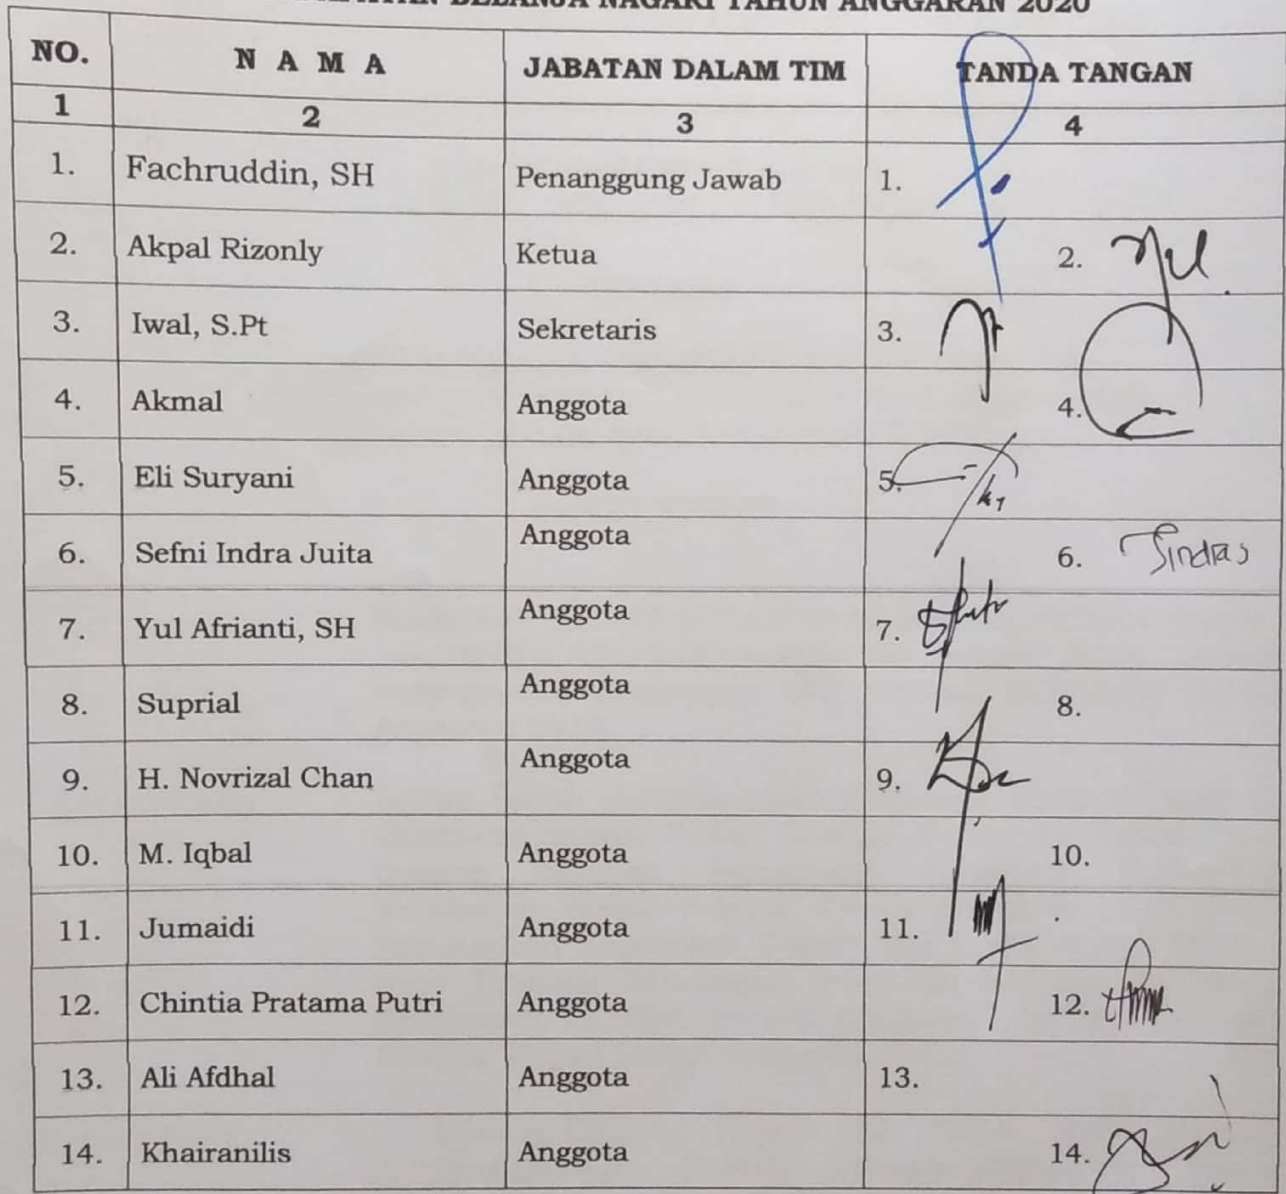 BELANJA NAGARI TAHUN ANGGARAN 2020
NO. N A M A JABATAN DALAM TIM TANDA TANGAN
1 2 3 4
1. Fachruddin, SH Penanggung Jawab 1.
2. Akpal Rizonly Ketua 2.
3. Iwal, S.Pt Sekretaris 3.
4. Akmal Anggota 4.
5. Eli Suryani Anggota 5.
6. Sefni Indra Juita Anggota 6.
7. Yul Afrianti, SH Anggota 7.
8. Suprial Anggota 8.
9. H. Novrizal Chan Anggota 9.
10. M. Iqbal Anggota 10.
11. Jumaidi Anggota 11.
12. Chintia Pratama Putri Anggota 12.
13. Ali Afdhal Anggota 13.
14. Khairanilis Anggota 14.